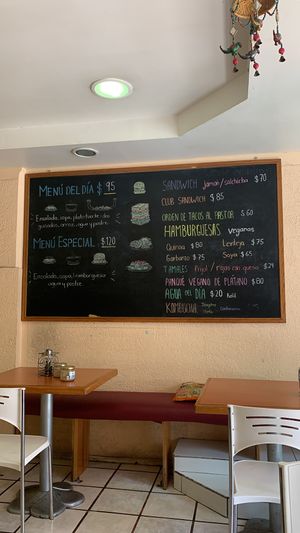 MENÚ DEL DÍA $ 95
Ensalada, sopa, plato fuerte de
guisados, arroz, agua y postre
MENÚ ESPECIAL $120
Ensalada, sopa, hamburguesa
agua y postre.
SANDWICH jamon/salchicha $70
CLUB SANDWICH $ 85
ORDEN DE TACOS AL PASTOR $ 60
HAMBURGUESAS Veganas
Quinoa $80 Lenteja $75
Garbanzo $75 Soya $65
TAMALES frijol / rajas con queso $24
PANQUÉ VEGANO DE PLÁTANO $80
AGUA DEL DÍA $20
KOMBUCHA